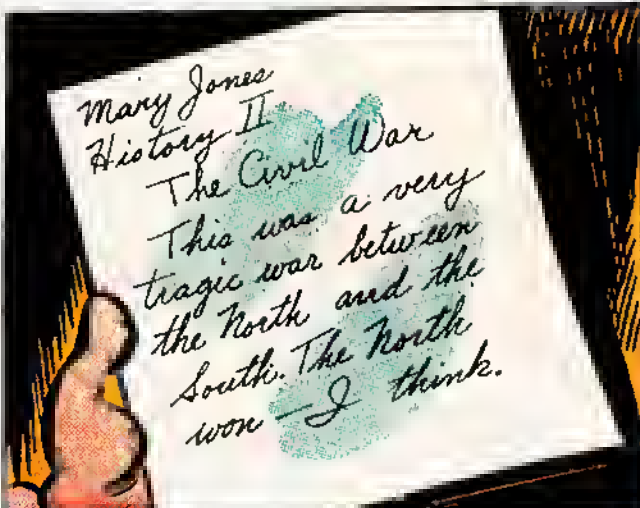 Mary Jones
History II
The Civil War
This was a very
tragic war between
the North and the
South. The North
won — I think.